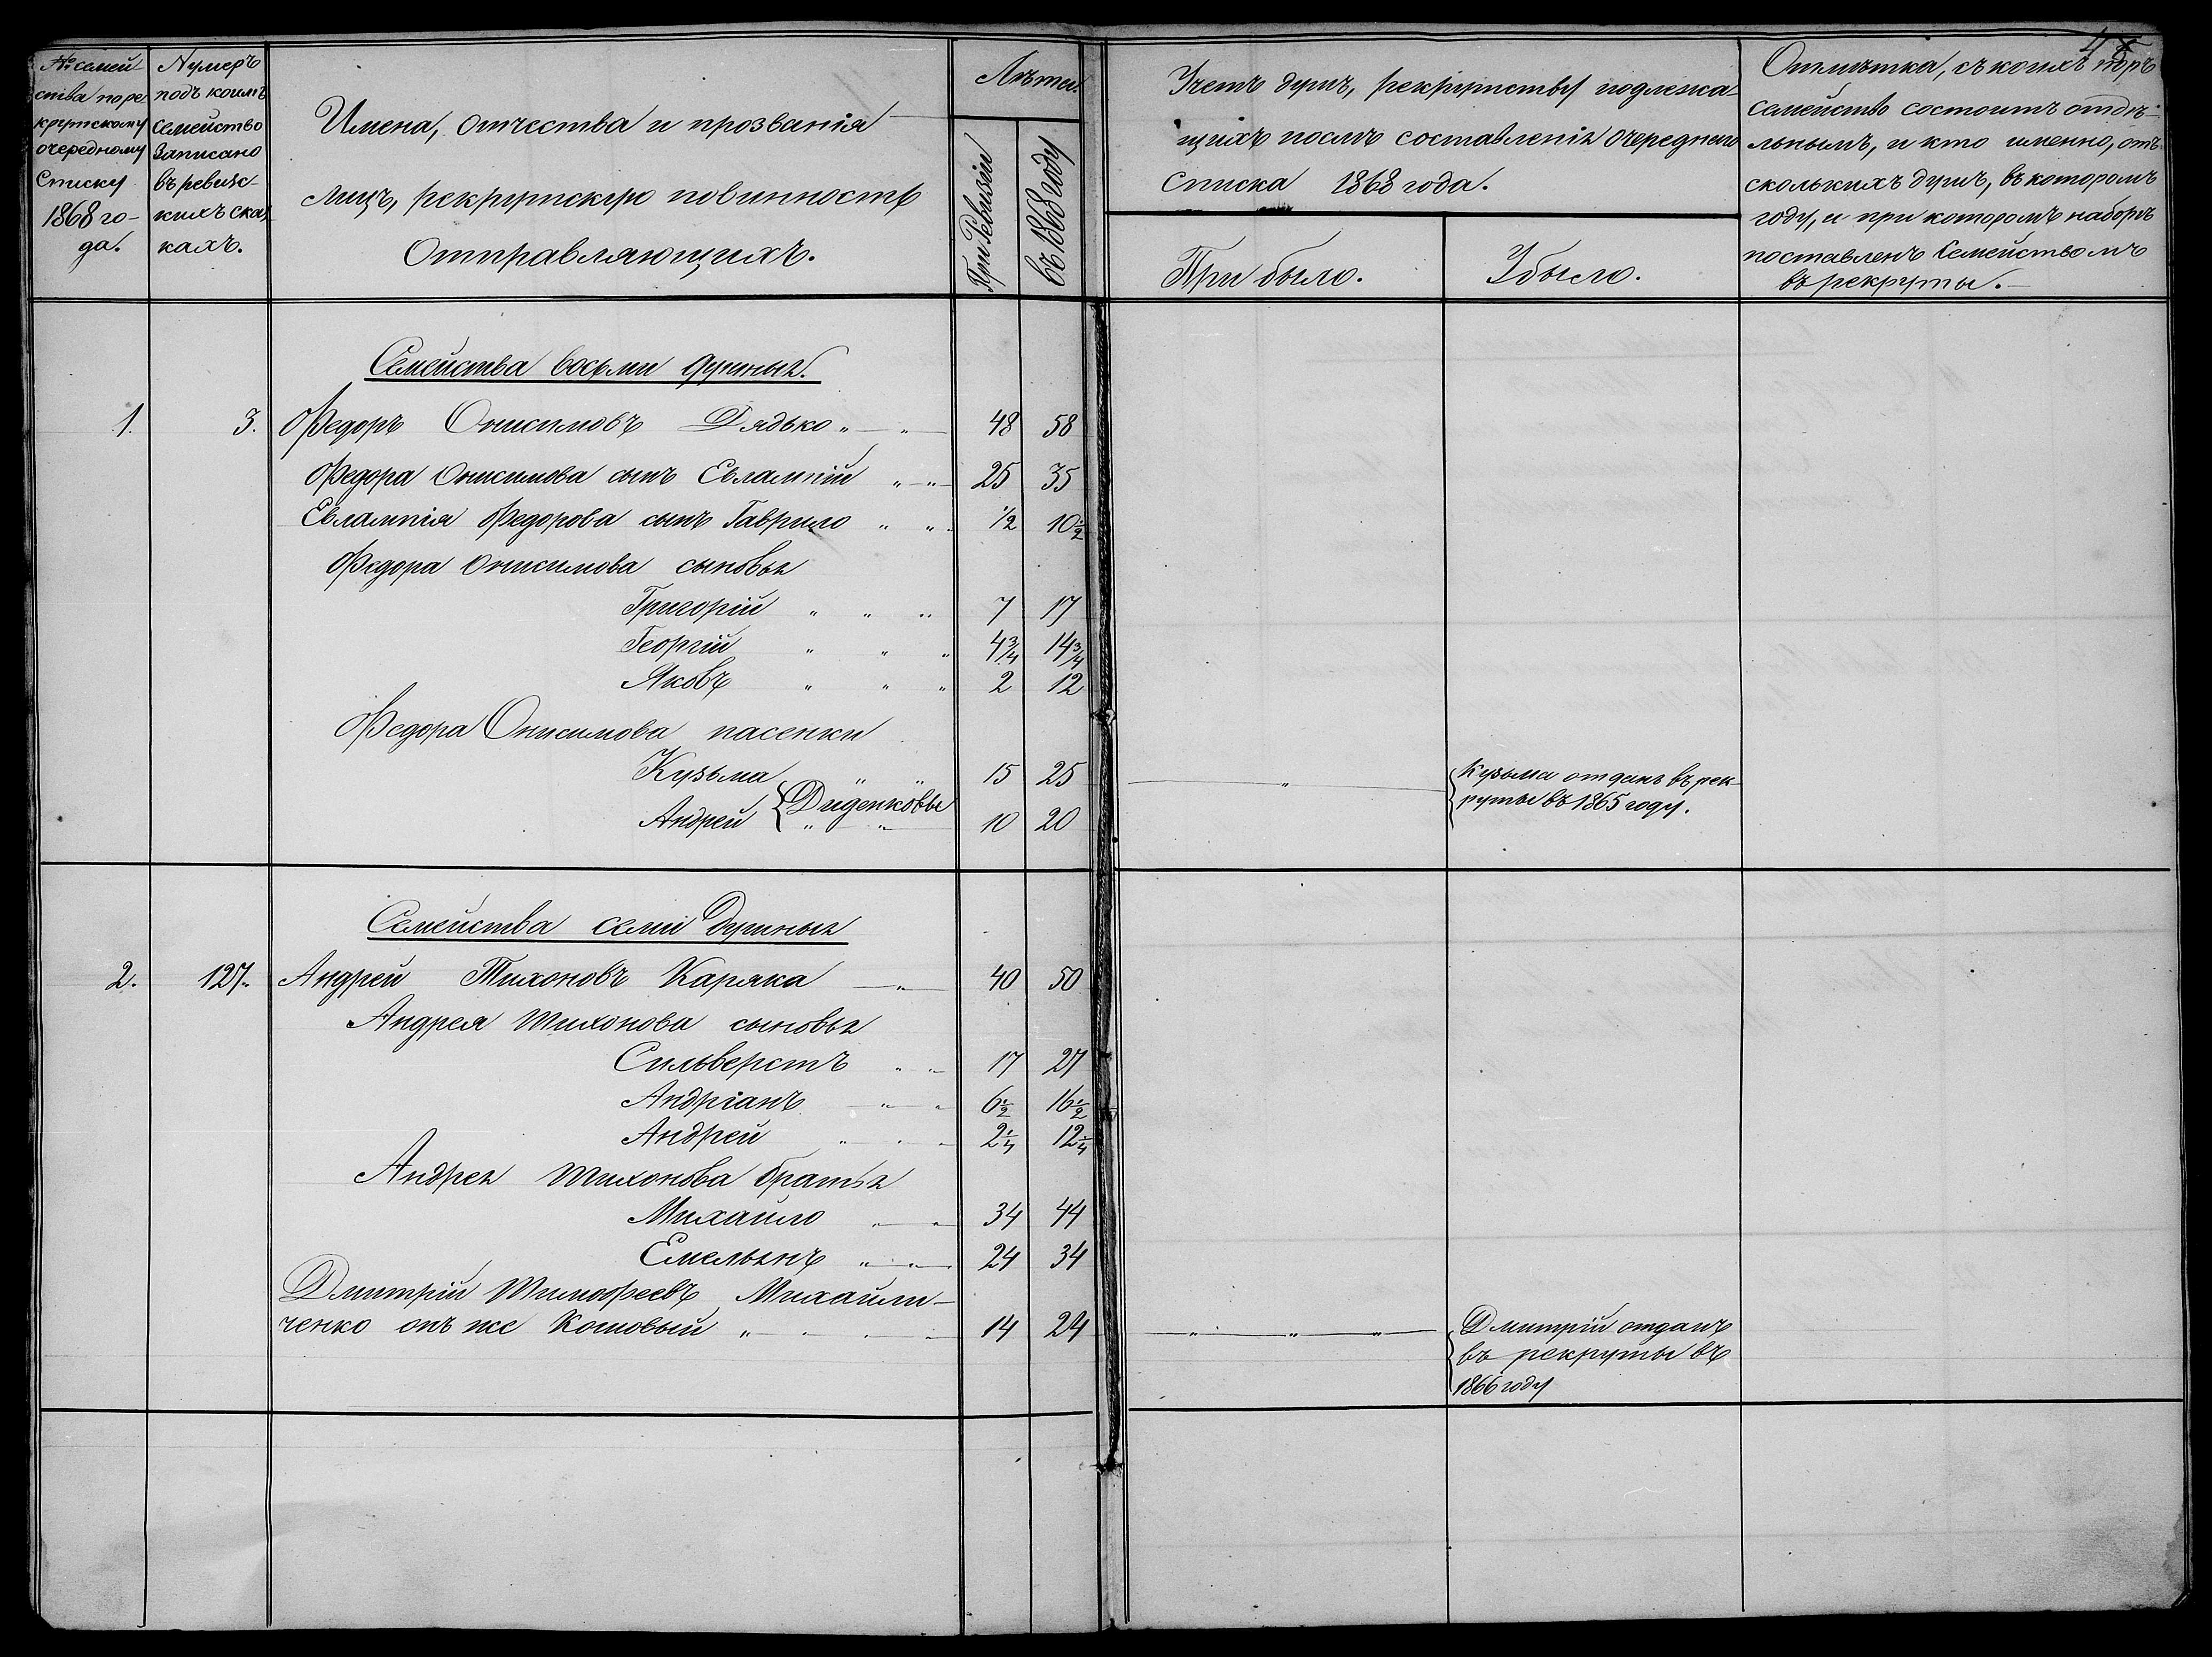 47
№ семей-
ства по ре-
крутскому
очередному
списку
1868 го-
да.
Нумеръ
подъ коимъ
семейство
записано
въ ревизс-
кихъ сказ-
кахъ.
Имена, отчества и прозванія
лицъ, рекрутскую повинность
отправляющихъ.
Лѣта.
При Ревизіи
въ 1868 году
Учетъ душъ, рекрутству подлежа-
щихъ послѣ составленія очереднаго
списка 1868 года.
Прибыло.
Убыло.
Отмѣтка, съ коихъ поръ
семейство состоитъ отдѣ-
льнымъ, и кто именно, отъ
сколькихъ душъ, въ которомъ
году, и при которомъ наборѣ
поставленъ семействомъ
въ рекруты.
Семейства восьми душныя.
1. 3. Федоръ Онисимовъ Дядько „ — „ 48 58
Федора Онисимова сынъ Евлампій „ „ 25 35
Евлампія Федорова сынъ Гаврило „ „ 1/2 10 1/2
Федора Онисимова сыновья
Григорій „ „ „ 7 17
Георгій „ „ „ 4 3/4 14 3/4
Яковъ „ „ „ 2 12
Федора Онисимова пасенки
Кузьма „ „ 15 25 — „ — Кузьма отданъ въ рек-
Диденковы
Андрей „ „ 10 20 руты въ 1865 году.
Семейства семи душныя
2. 127. Андрей Тихоновъ Каряка — „ 40 50
Андрея Тихонова сыновья
Сильверстъ „ „ 17 27
Андріанъ „ „ 6 1/2 16 1/2
Андрей „ „ „ 2 1/4 12 1/4
Андрея Тихонова братья
Михайло „ „ 34 44
Емельянъ „ „ 24 34
Дмитрій Тимофеевъ Михайли-
ченко онъ же Кошовый „ „ „ „ 14 24 — „ — „ — „ — Дмитрій отданъ
въ рекруты въ
1866 году